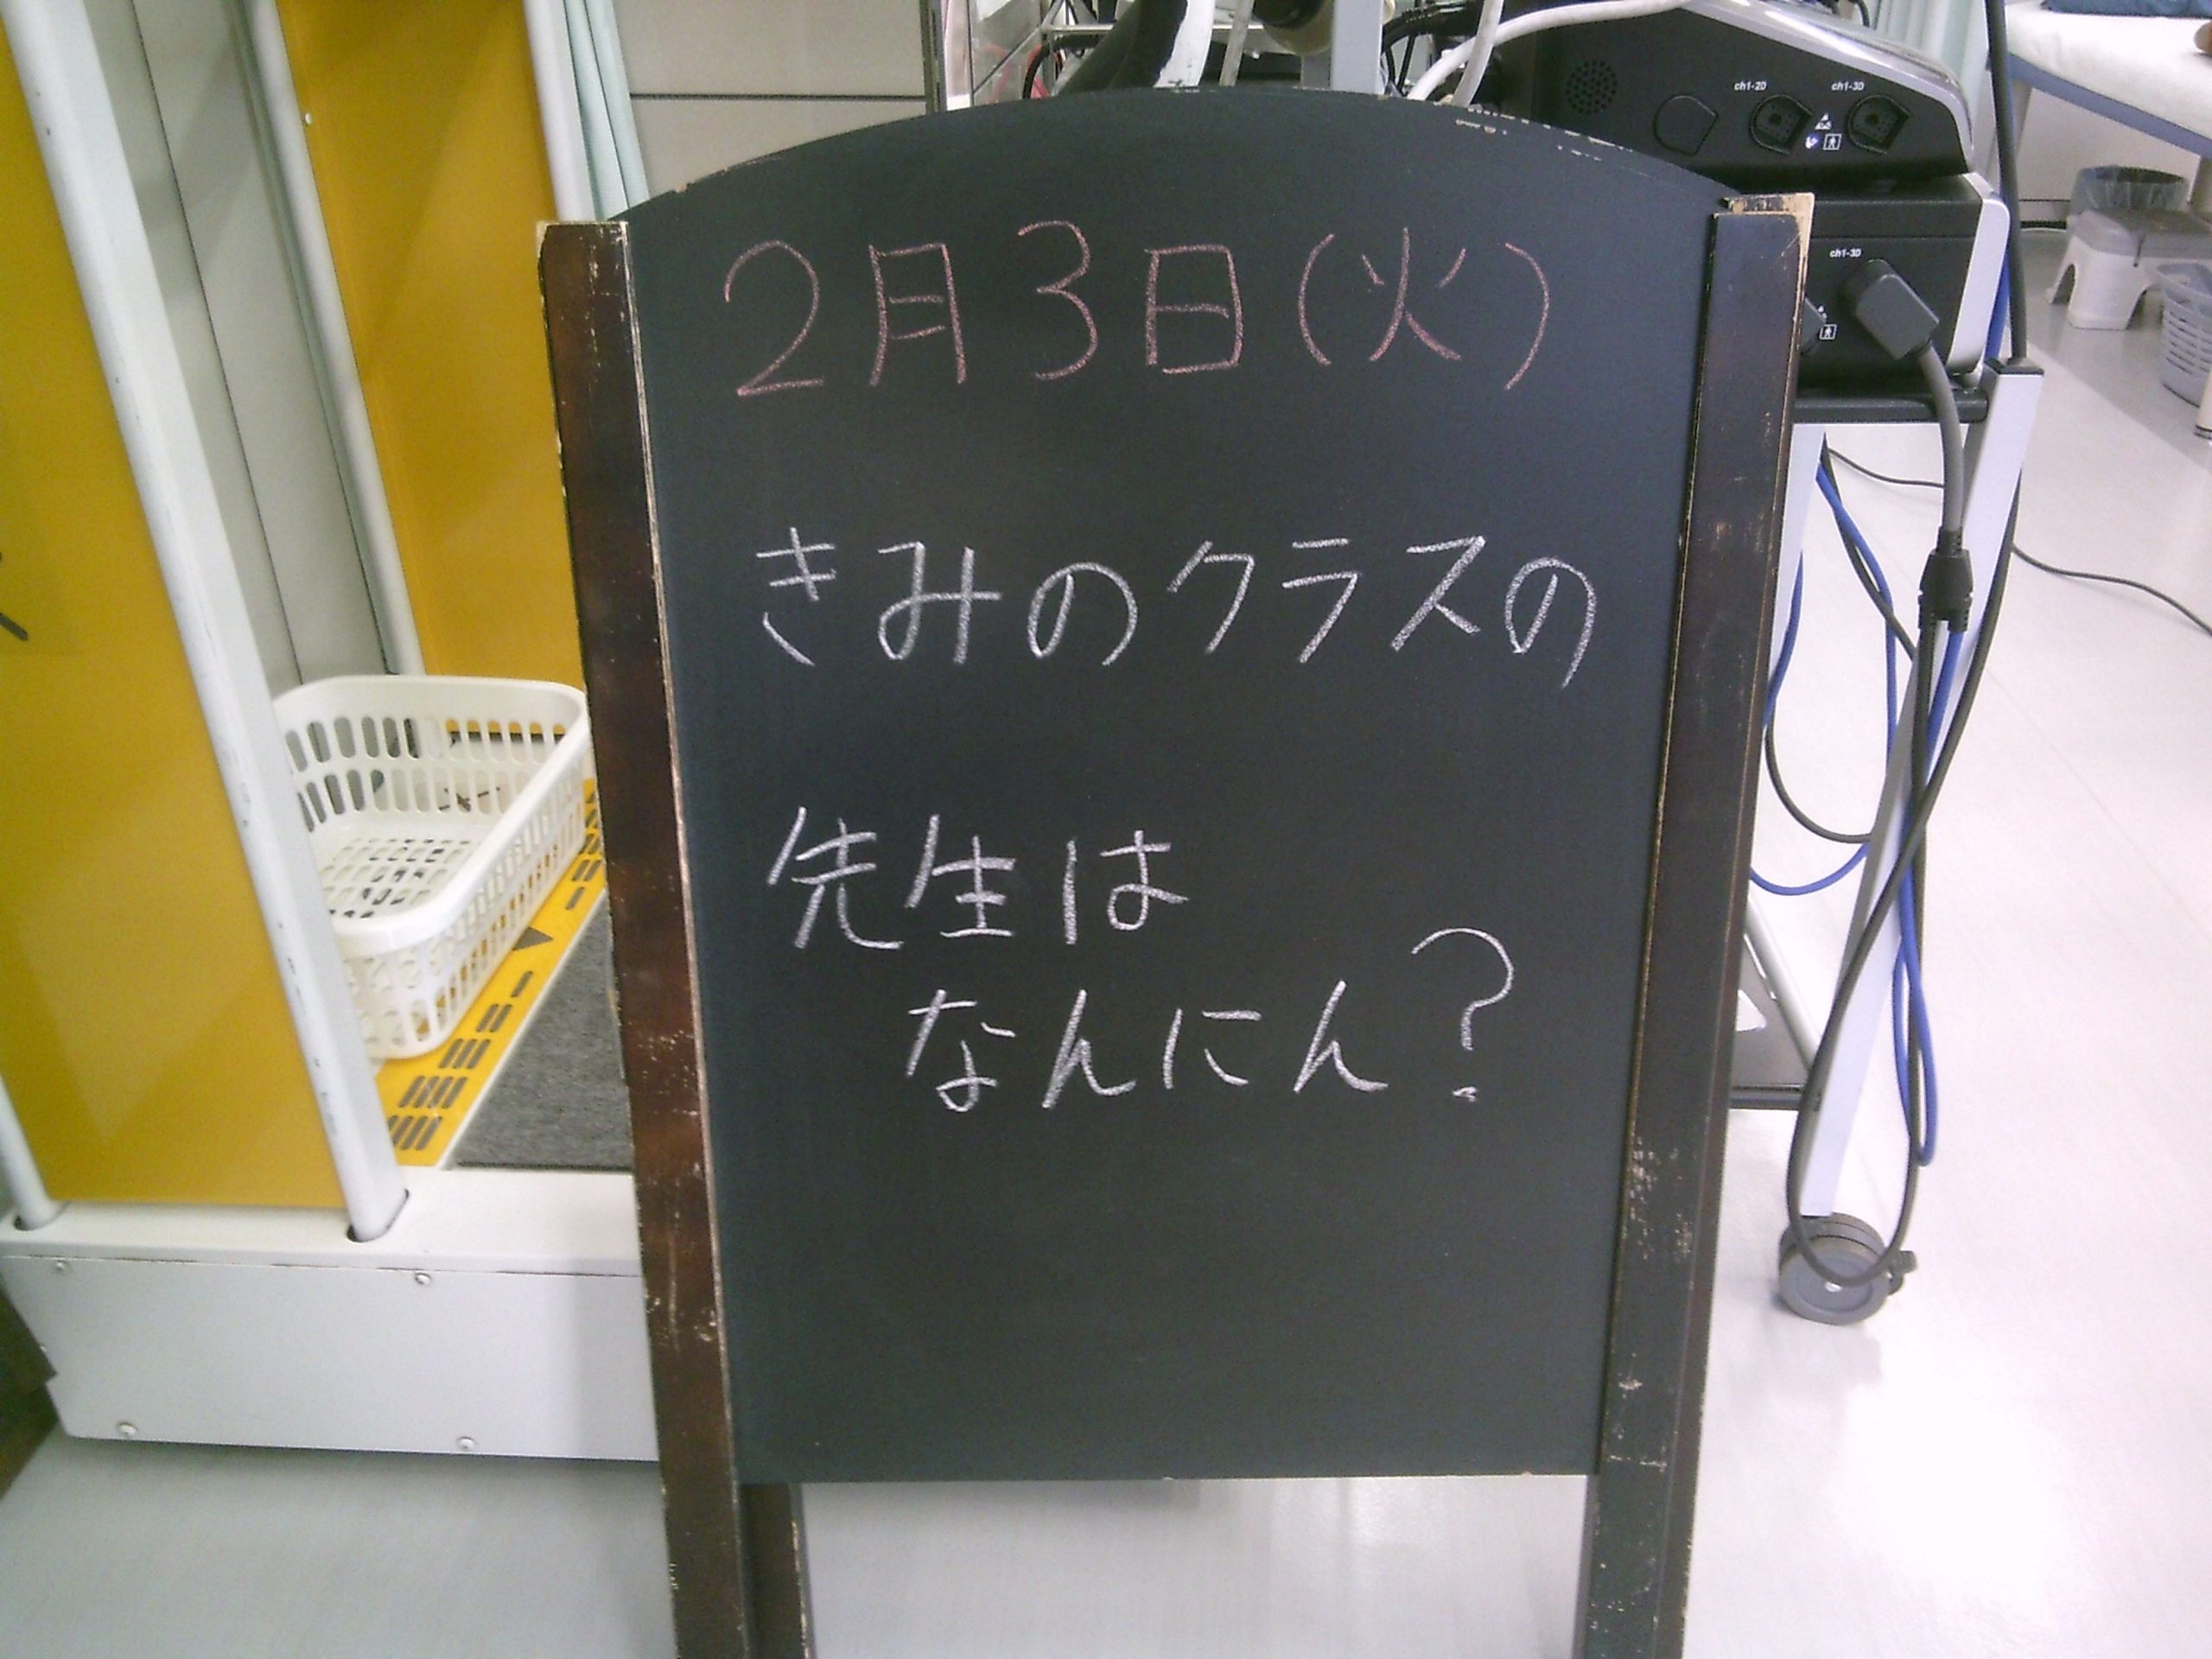 2月3日(火)
きみのクラスの
先生は
なんにん?
ch1-2D
ch1-3D
ch1-3D